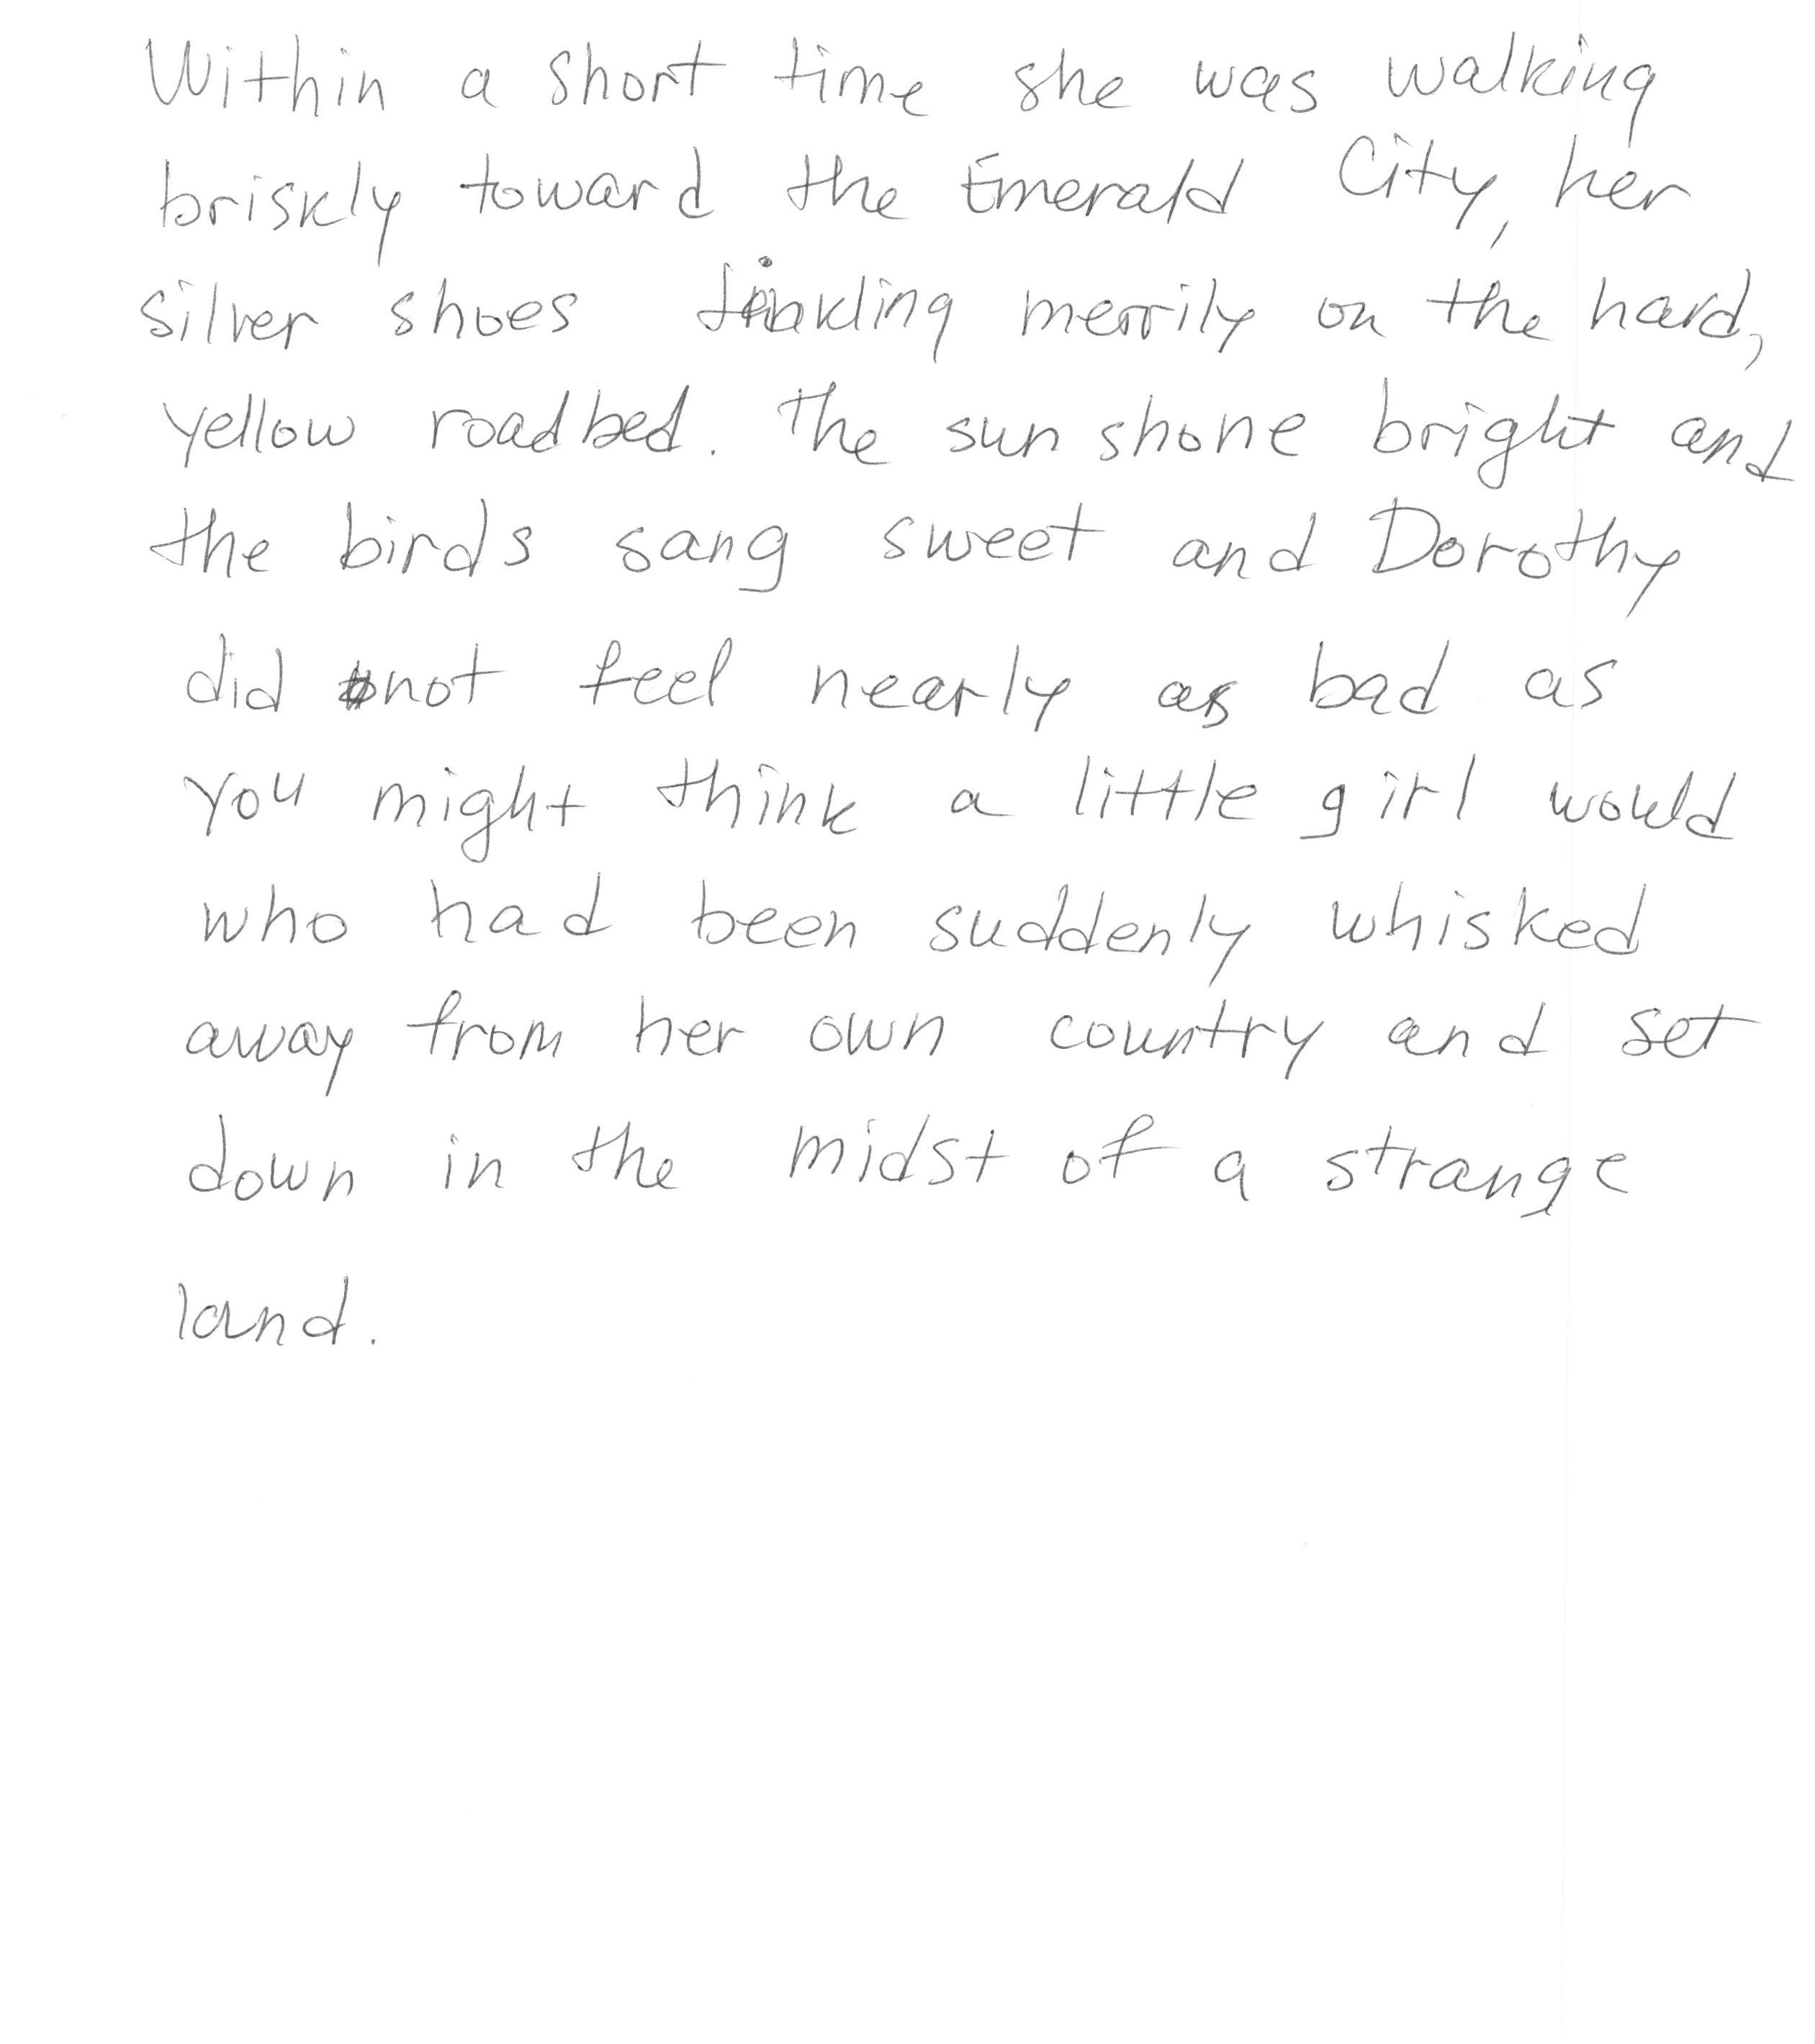 Within a short time she was walking
briskly toward the Emerald City, her
silver shoes tinkling merrily on the hard,
yellow roadbed. The sun shone bright and
the birds sang sweet and Dorothy
did not feel nearly as bad as
you might think a little girl would
who had been suddenly whisked
away from her own country and set
down in the midst of a strange
land.